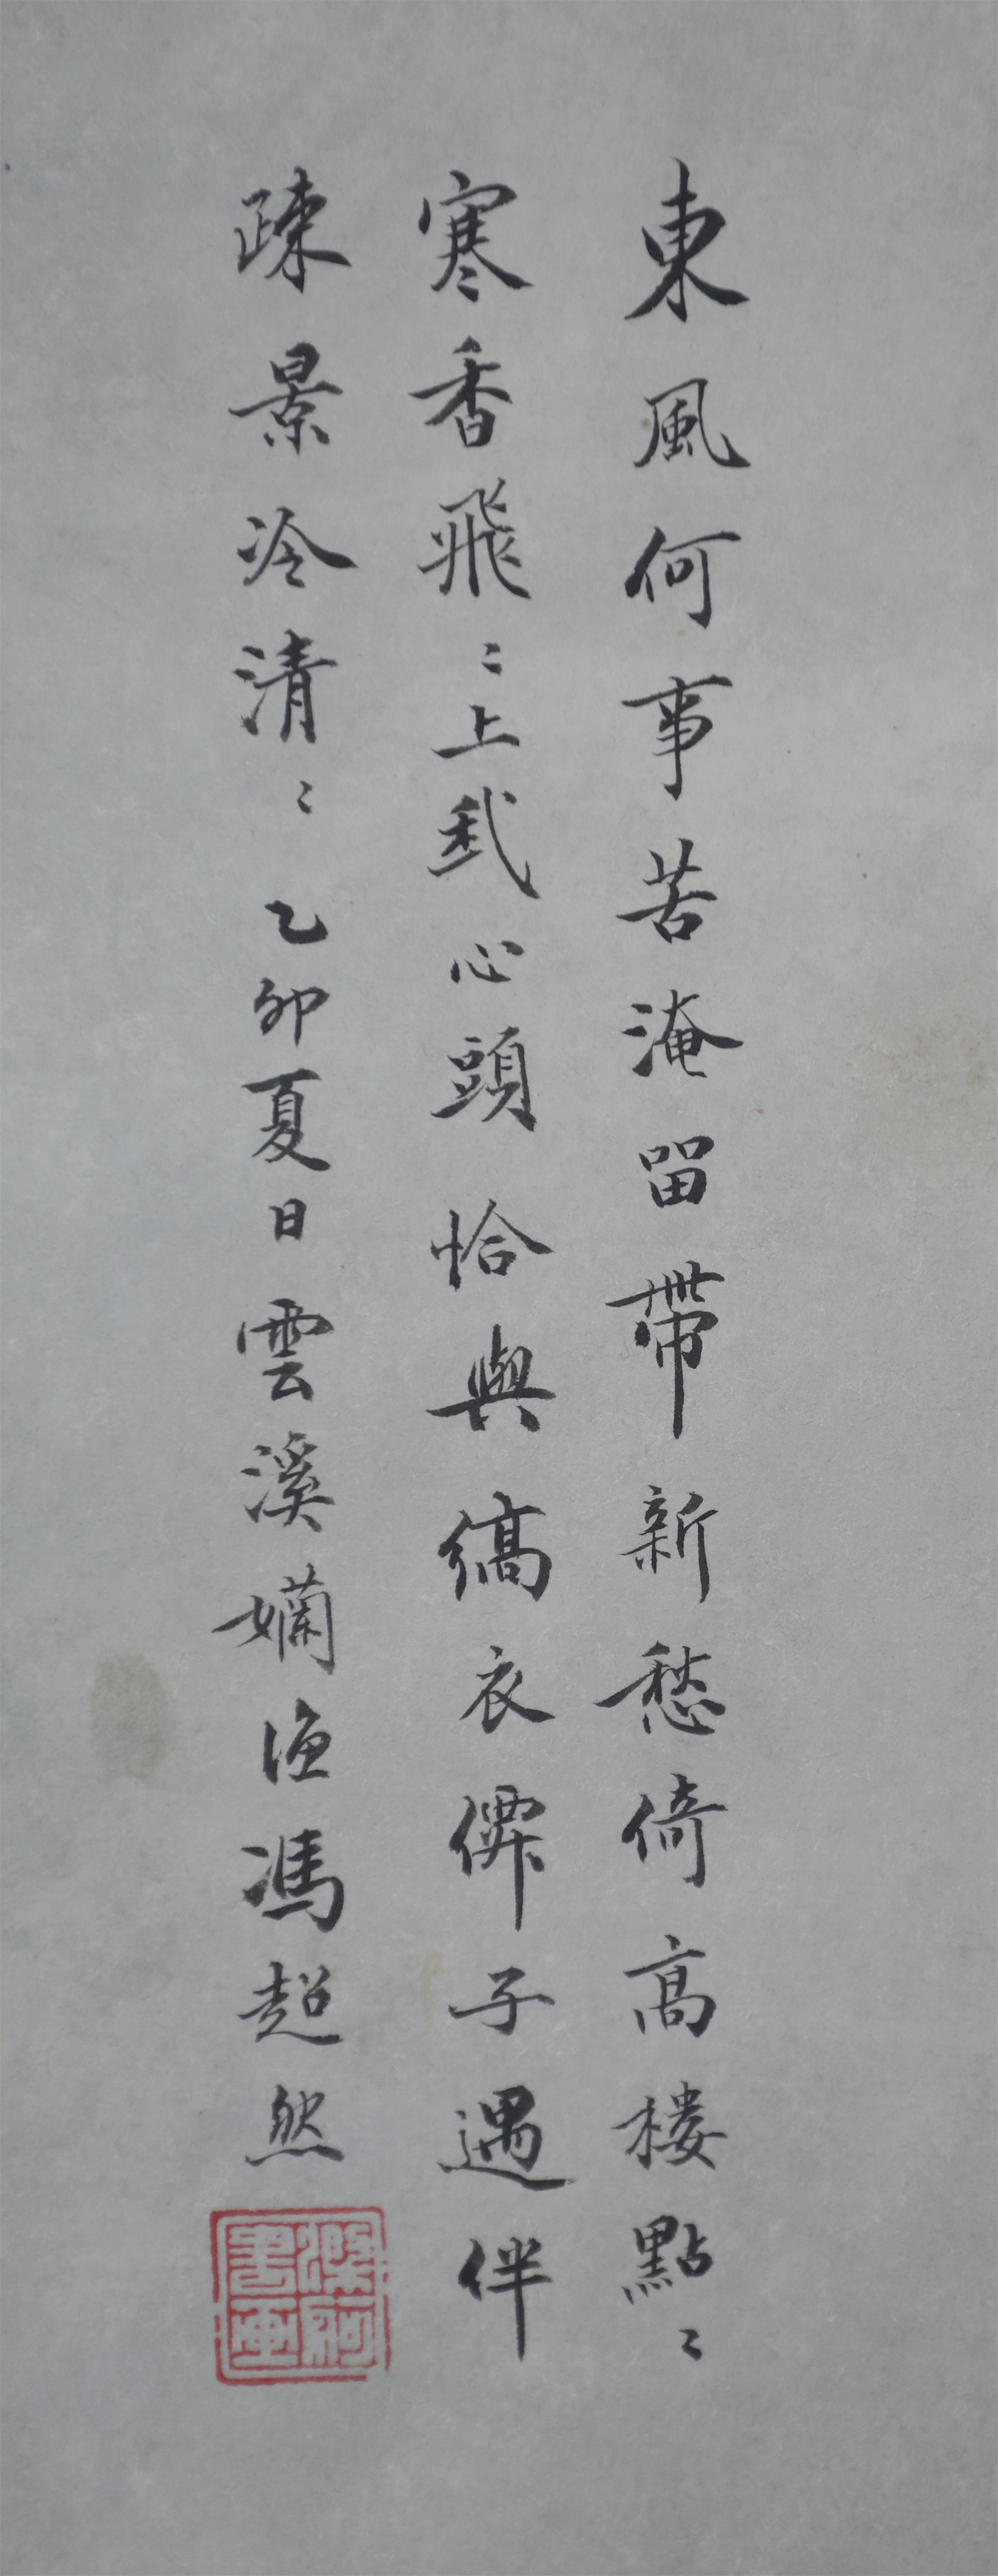 東風何事苦淹留帶新愁倚高樓點〻
寒香飛〻上我心頭恰與縞衣僊子遇伴
疎景冷清〻乙卯夏日雲溪嬾漁馮超然